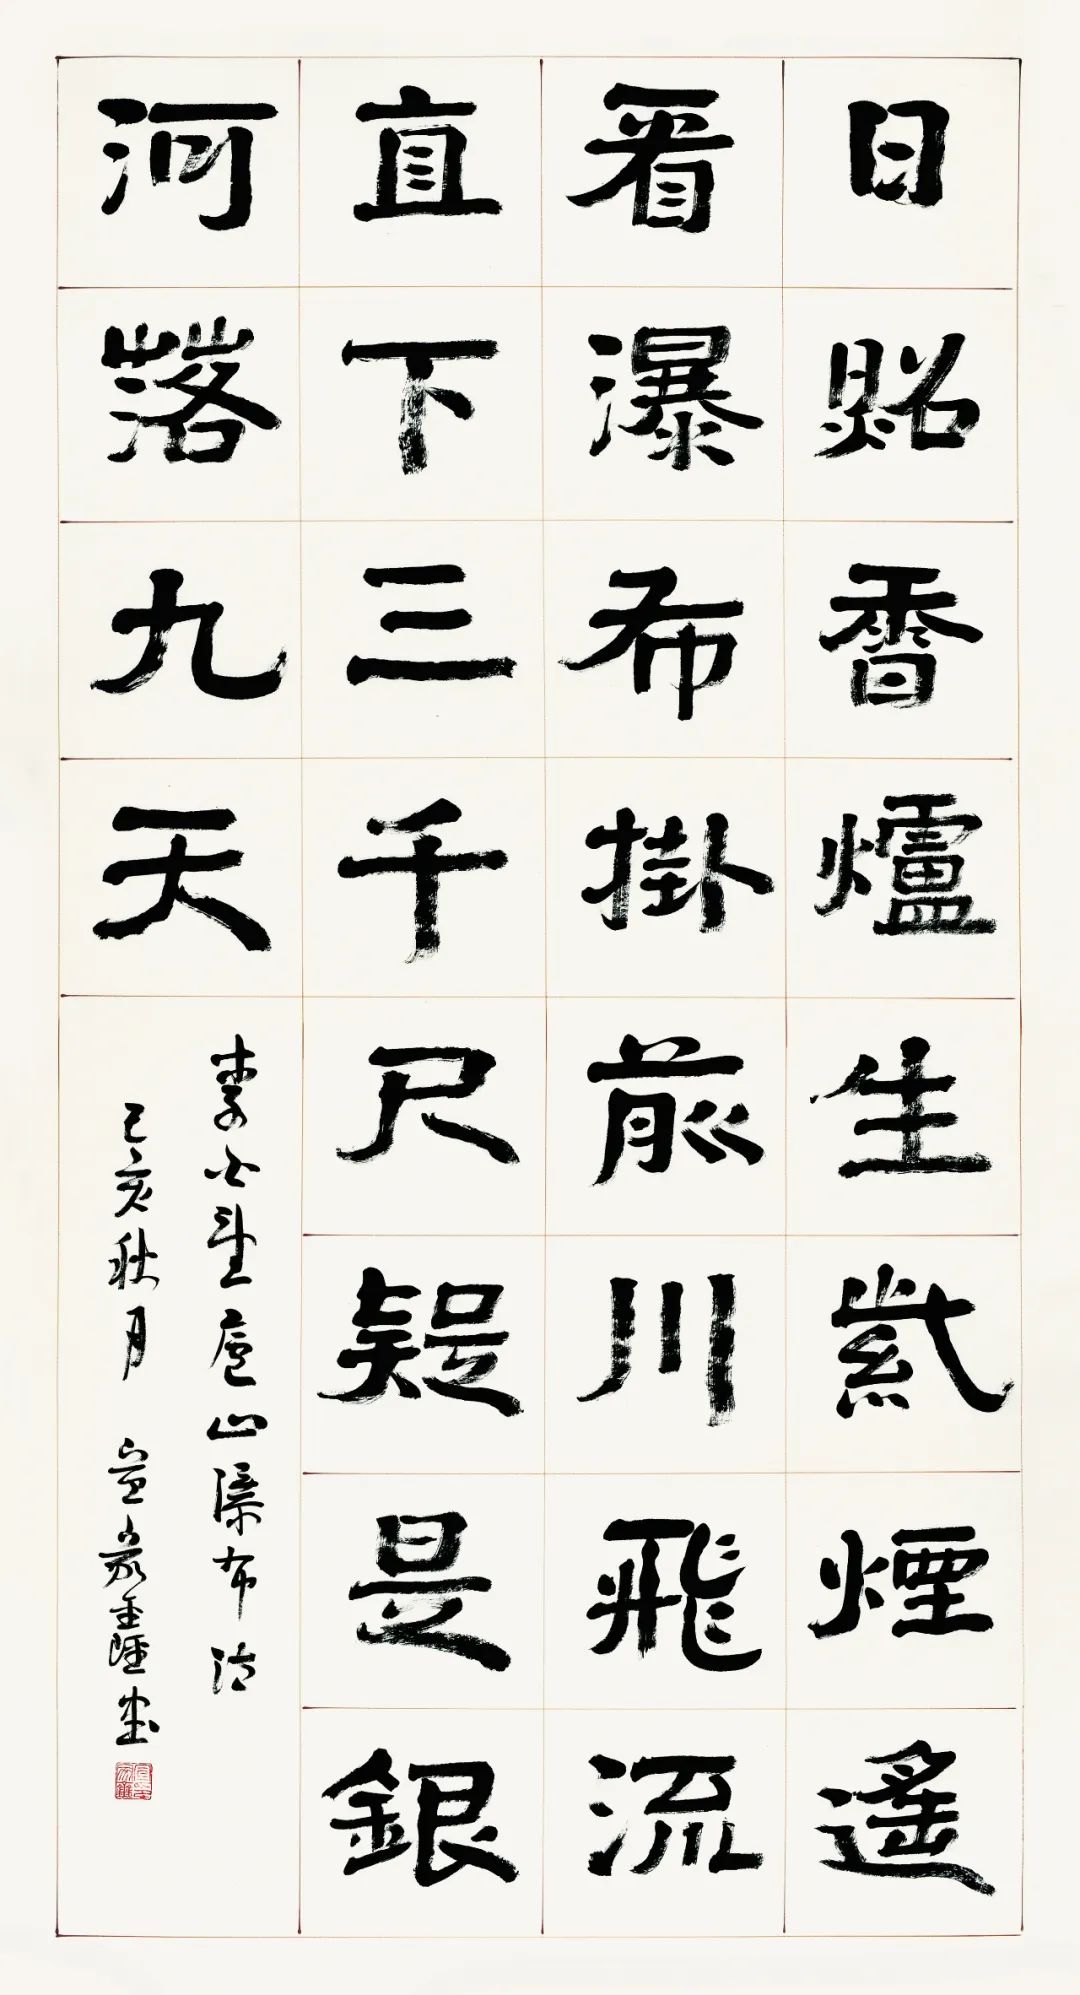 日照香爐生紫煙遙
看瀑布掛前川飛流
直下三千尺疑是銀
河落九天
李白望廬山瀑布詩
己亥秋月 宣家鑫